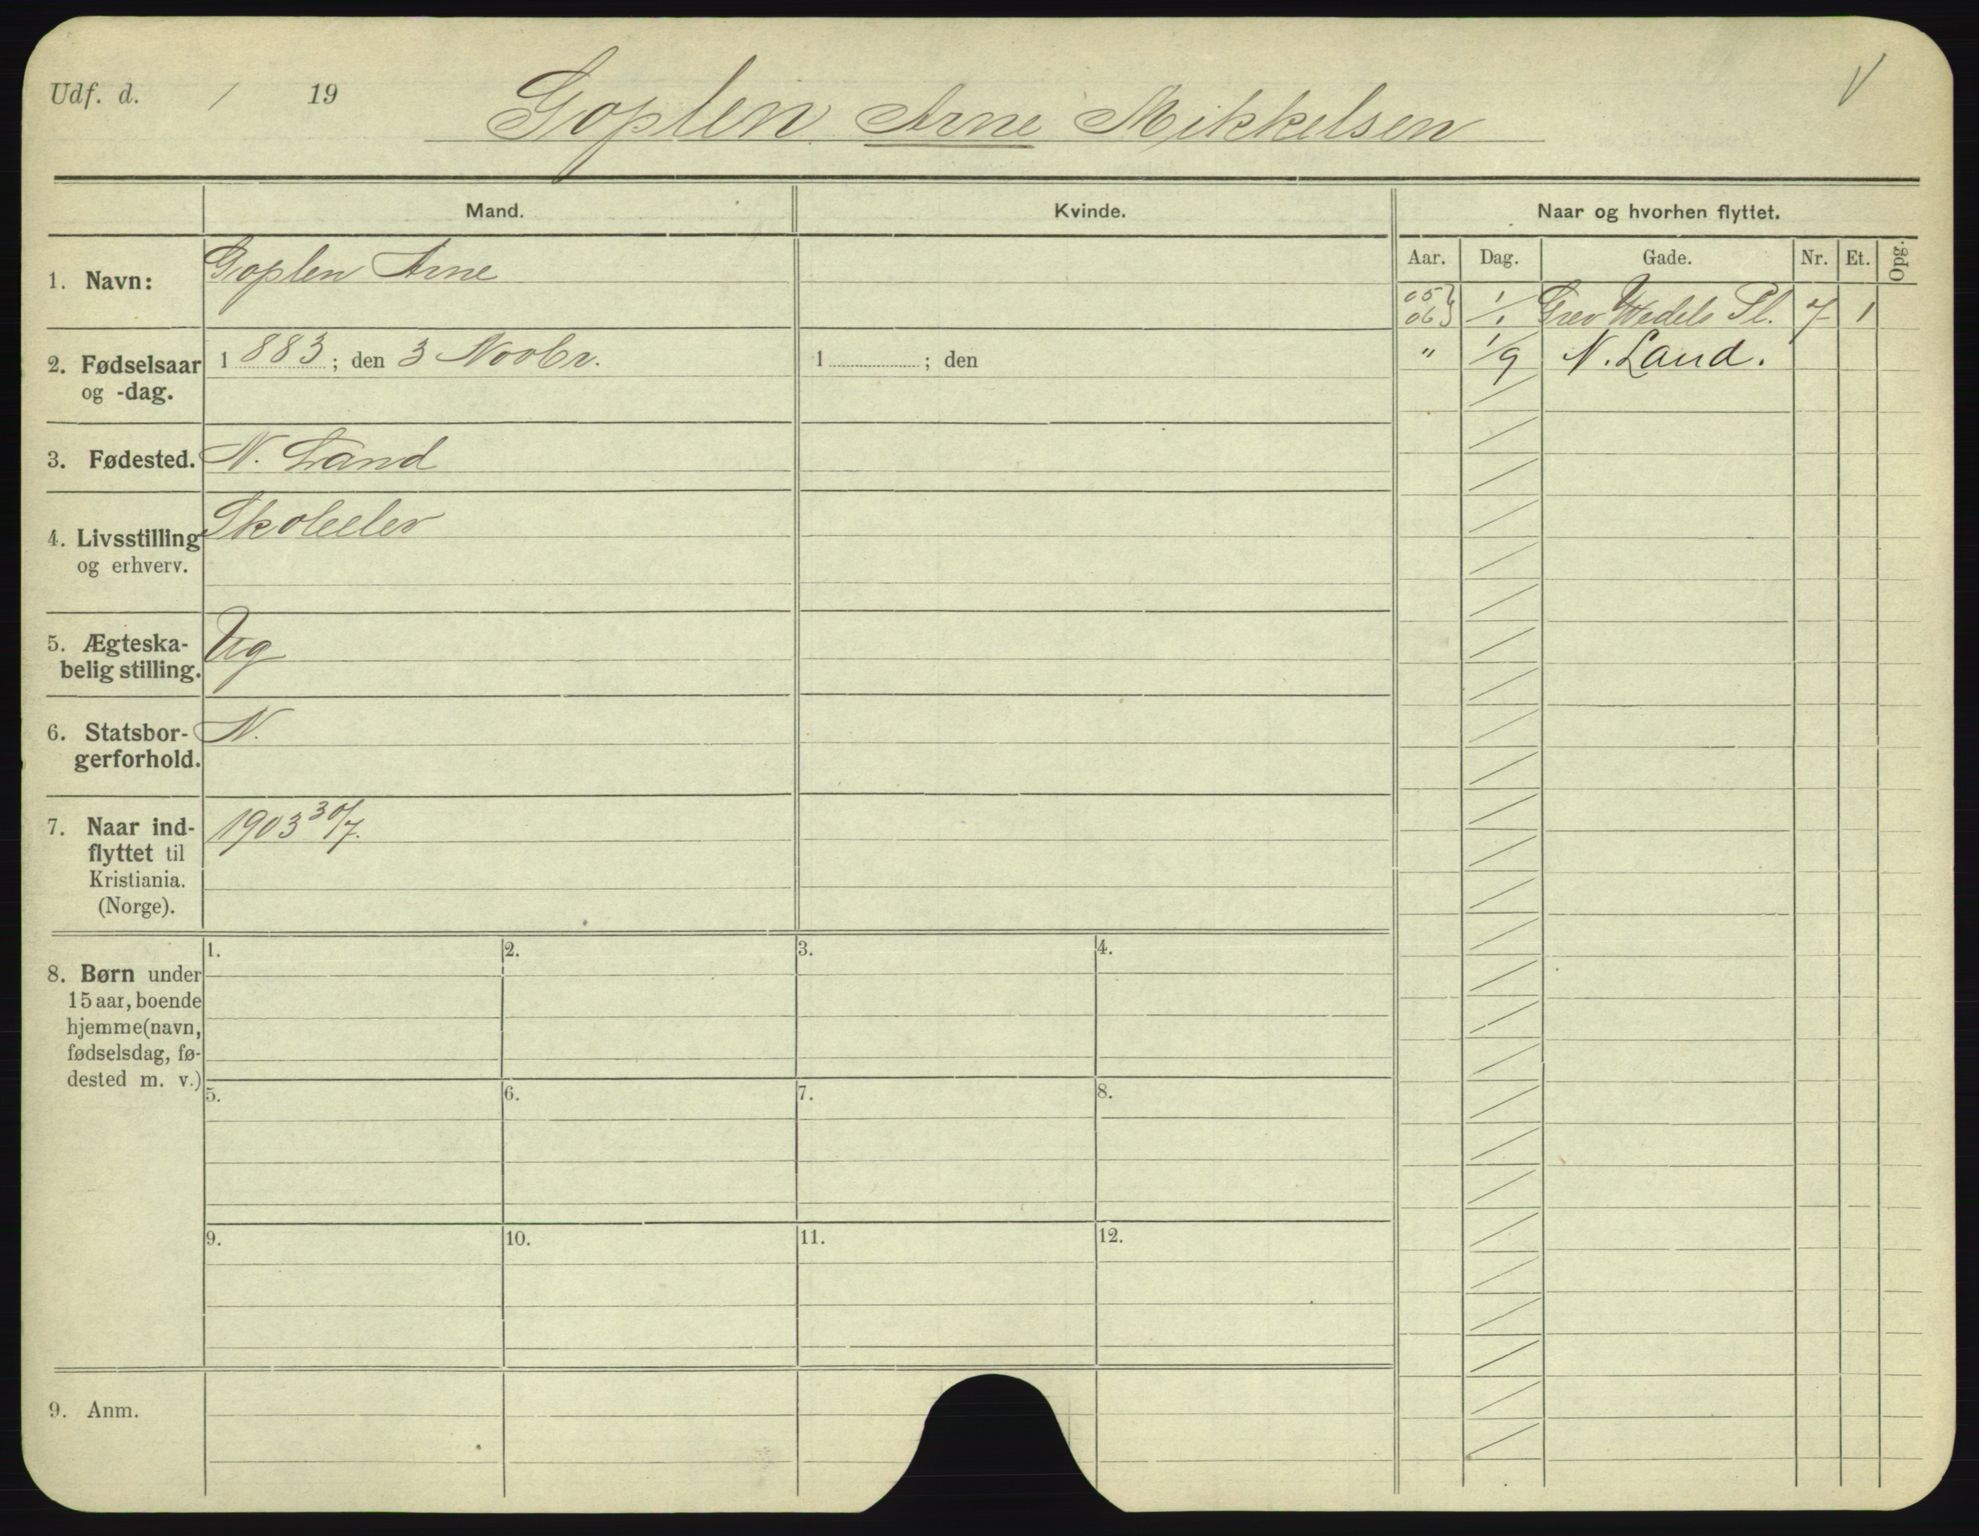 Udf. d. / 19
Goplen Arne Mikkelsen
V
Mand. Kvinde. Naar og hvorhen flyttet.
Aar. Dag. Gade. Nr. Et. Opg.
1. Navn: Goplen Arne
05 }
06 } 1/1 Grev Wedels Pl. 7 1
" 1/9 N. Land.
2. Fødselsaar 1883; den 3 Novbr. 1 ; den
og -dag.
3. Fødested. N. Land
4. Livsstilling Skoleelev
og erhverv.
5. Ægteska- Ug
belig stilling.
6. Statsbor- N.
gerforhold.
7. Naar ind- 1903 30/7.
flyttet til
Kristiania.
(Norge).
8. Børn under
15 aar, boende
hjemme (navn,
fødselsdag, fø-
dested m. v.)
1. 2. 3. 4.
5. 6. 7. 8.
9. 10. 11. 12.
9. Anm.